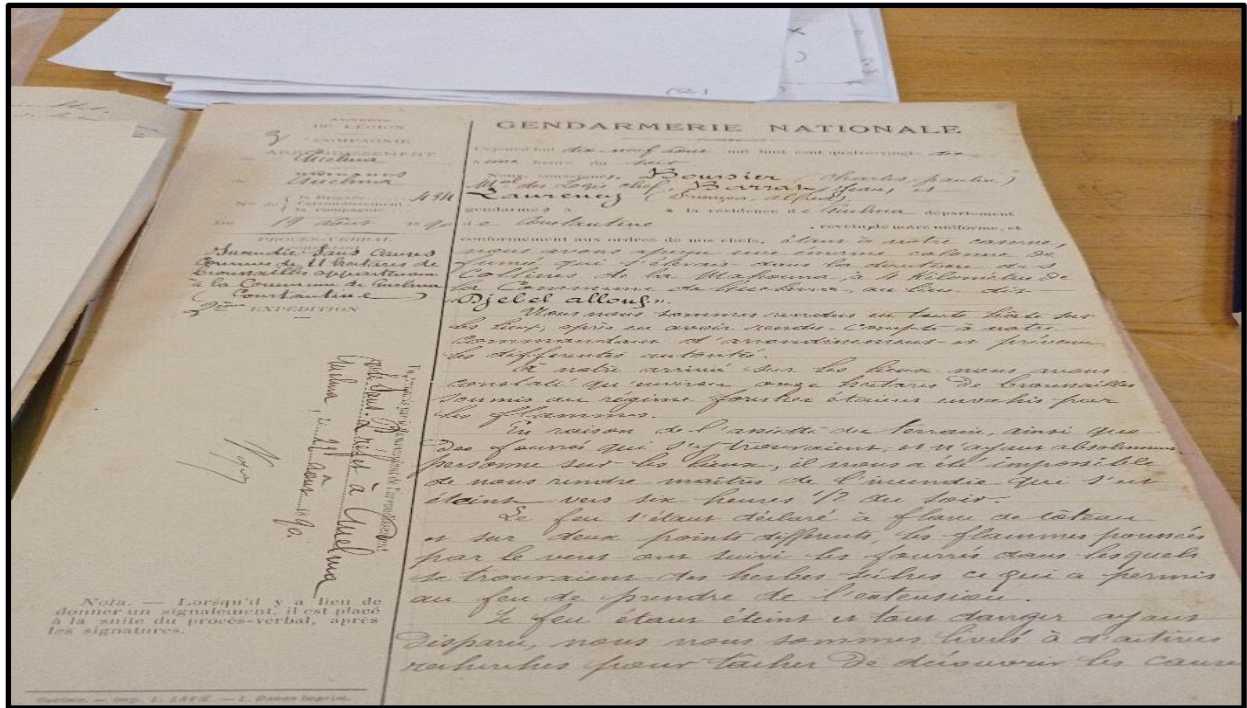 ALGÉRIE
19e LÉGION
3e COMPAGNIE
ARRONDISSEMENT
de Guelma
de Guelma
N° de la Brigade 434
l'arrondissement
la compagnie
Du 19 août 1890
PROCÈS-VERBAL
Incendie sans causes
connues de 11 hectares de
broussailles appartenant
à la Commune de Guelma
(Constantine)
2ème EXPÉDITION
Guelma, le 21 août 1890.
Nota. — Lorsqu'il y a lieu de
donner un signalement, il est placé
à la suite du procès-verbal, après
les signatures.
GENDARMERIE NATIONALE
Cejourd'hui dix-neuf août mil huit cent quatre-vingt-dix
à une heure du soir
Nous, soussignés, Boursier (Charles, paulin)
Mal des Logis chef, Barrat, Jean, et
Laurency (François, alfred)
gendarmes à la résidence de Guelma département
de Constantine, revêtus de notre uniforme, et
conformément aux ordres de nos chefs, étant à notre caserne,
nous avons aperçu une énorme colonne de
fumée qui s'élevait dans la direction des
Collines de la Mahouna, à 11 Kilomètres de
la Commune de Guelma, au lieu dit
Djebel allouf".
Nous nous sommes rendus en toute hâte sur
les lieux, après en avoir rendu-compte à notre
commandant d'arrondissement et prévenu
les différentes autorités.
à notre arrivée sur les lieux nous avons
constaté qu'environ onze hectares de broussailles
soumis au régime forestier étaient envahis par
les flammes.
En raison de l'assiette du terrain, ainsi que
des fourrés qui s'y trouvaient, et n'ayant absolument
personne sur les lieux, il nous a été impossible
de nous rendre maîtres de l'incendie qui s'est
éteint vers six heures 1/2 du soir.
Le feu s'étant déclaré à flanc de côteau
et sur deux points différents, les flammes poussées
par le vent ont suivi les fourrés dans lesquels
se trouvaient des herbes sèches ce qui a permis
au feu de prendre de l'extension.
Le feu étant éteint et tout danger ayant
disparu, nous nous sommes livrés à d'actives
recherches pour tâcher de découvrir les causes